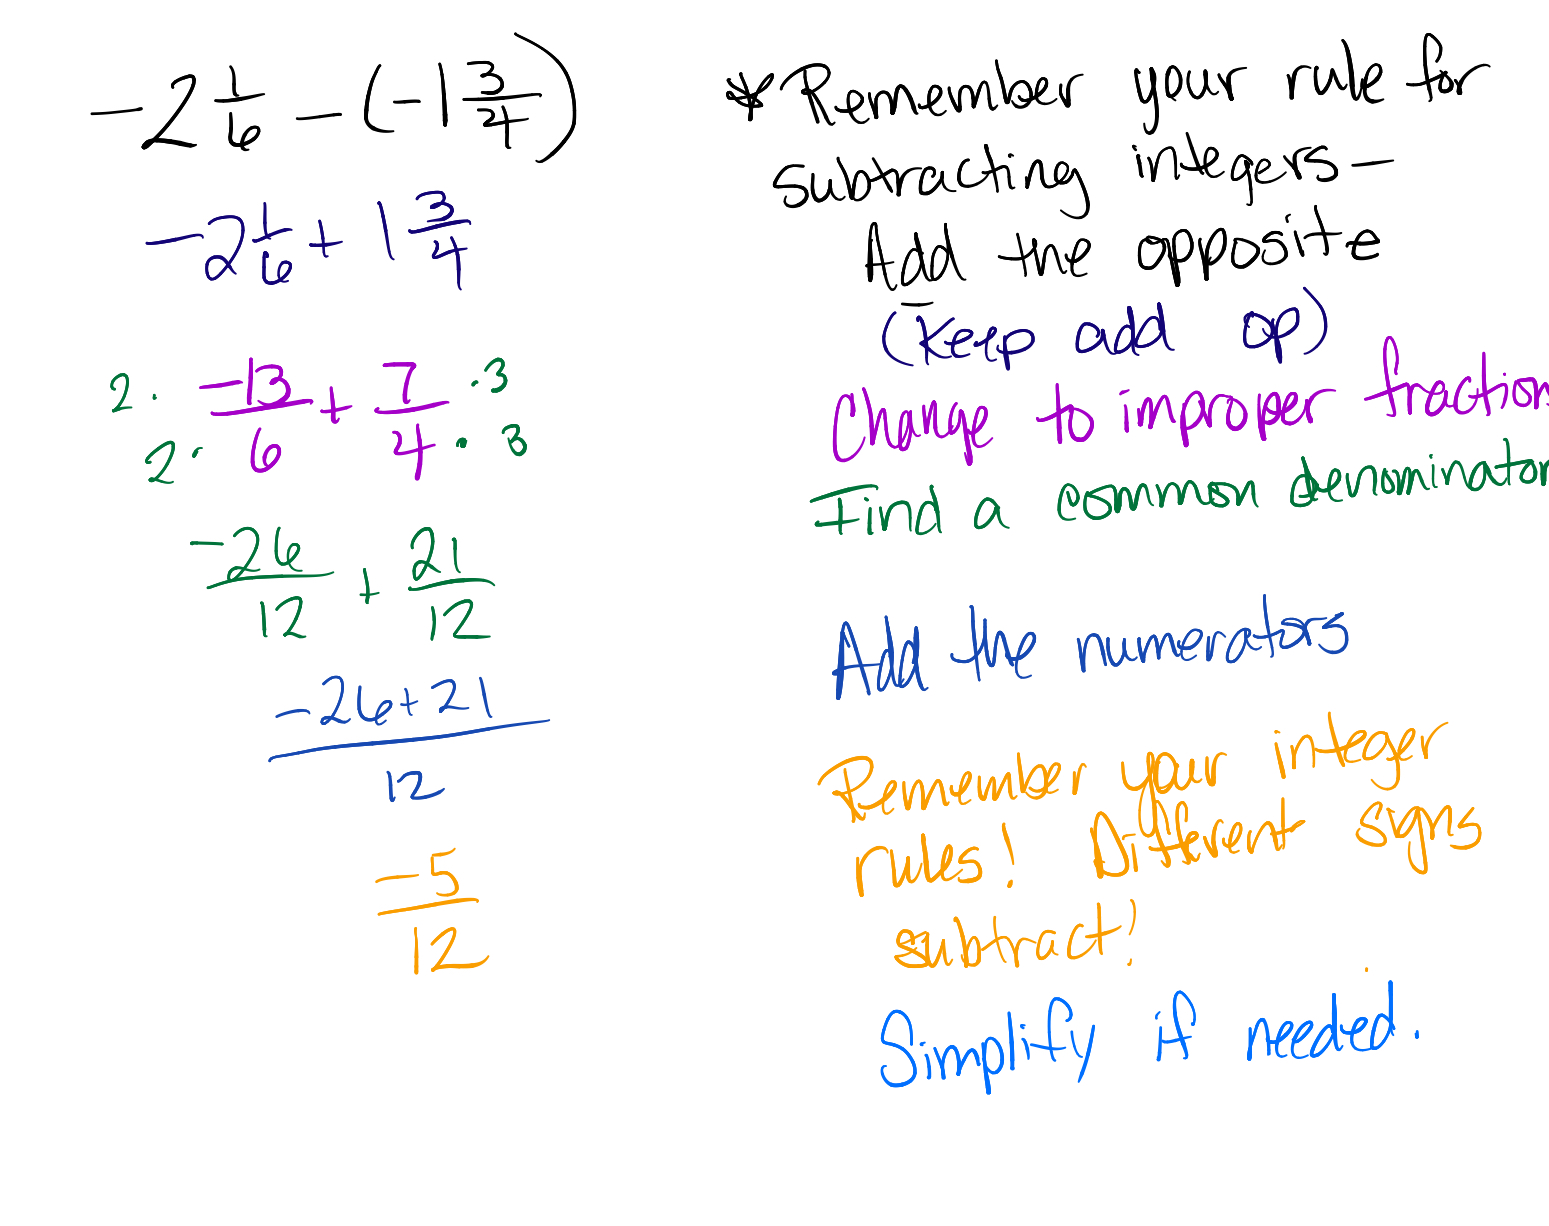 -2 1/6 - (-1 3/4)
-2 1/6 + 1 3/4
2· -13/6 + 7/4 ·3
2· ·3
-26/12 + 21/12
-26+21
12
-5
12
* Remember your rule for
subtracting integers -
Add the opposite
(Keep add op)
Change to improper fraction
Find a common denominator
Add the numerators
Remember your integer
rules! Different signs
subtract!
Simplify if needed.